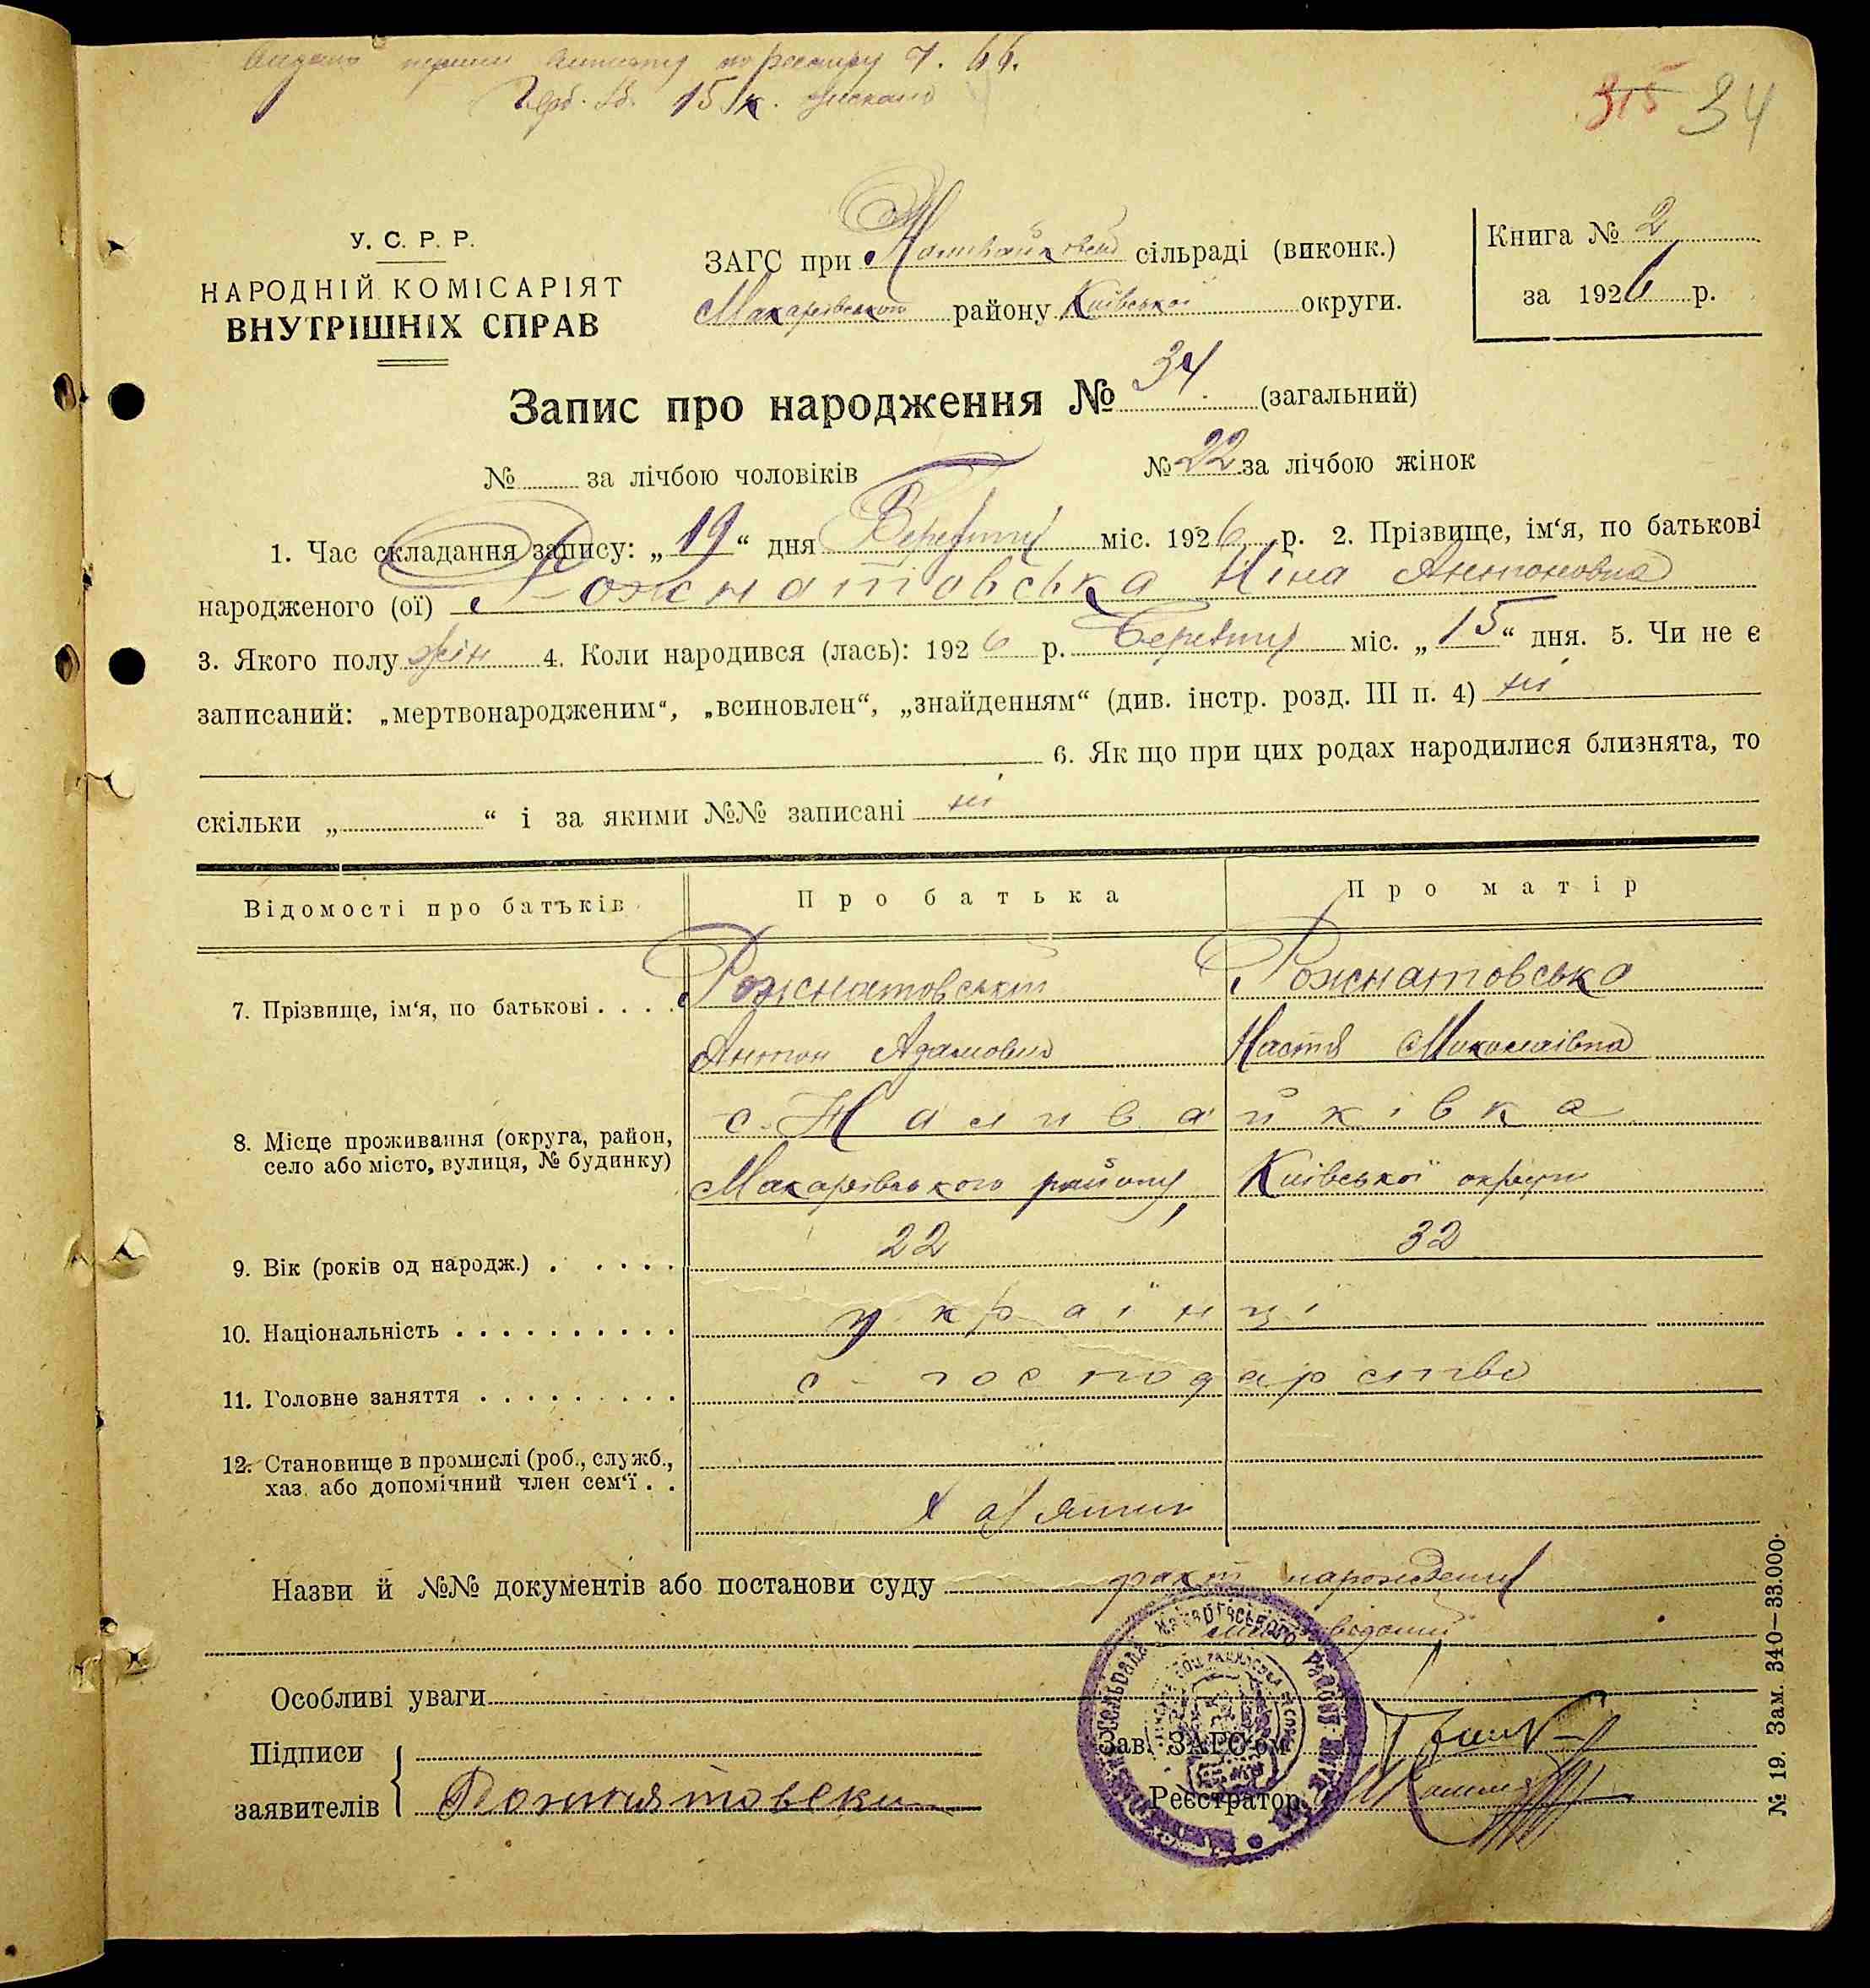 по реєстру ч. 66.
Герб. зб. 15 к.
315 34
У. С. Р. Р.
НАРОДНІЙ КОМІСАРІЯТ
ВНУТРІШНІХ СПРАВ
ЗАГС при Наливайковській сільраді (виконк.)
Макарівського району Київської округи.
Книга № 2
за 1926 р.
Запис про народження № 34. (загальний)
№ за лічбою чоловіків № 22 за лічбою жінок
1. Час складання запису: „19“ дня Березня міс. 1926 р. 2. Прізвище, ім‘я, по батькові
народженого (ої) Рожнатовська Ніна Антоновна
3. Якого полу жін 4. Коли народився (лась): 1926 р. Березня міс. „15“ дня. 5. Чи не є
записаний: „мертвонародженим“, „всиновлен“, „знайденням“ (див. інстр. розд. III п. 4) ні
6. Як що при цих родах народилися близнята, то
скільки „ “ і за якими №№ записані ні
Відомості про батьків Про батька Про матір
7. Прізвище, ім‘я, по батькові . . . . Рожнатовський Рожнатовська
Антон Адамович Настя Миколаівна
8. Місце проживання (округа, район, село або місто, вулиця, № будинку) с. Наливайківка
Макарівського району, Київської округи
9. Вік (років од народж.) . . . . . 22 32
10. Національність . . . . . . . . . . українці
11. Головне заняття . . . . . . . . . с-господарство
12. Становище в промислі (роб., служб.,
хаз. або допомічний член сем‘ї . . хазяїни
Назви й №№ документів або постанови суду факт народження
відомий
Особливі уваги
Підписи
заявителів Рожнятовски
Зав. ЗАГС‘ом
Реєстратор
№ 19. Зам. 340—33.000.